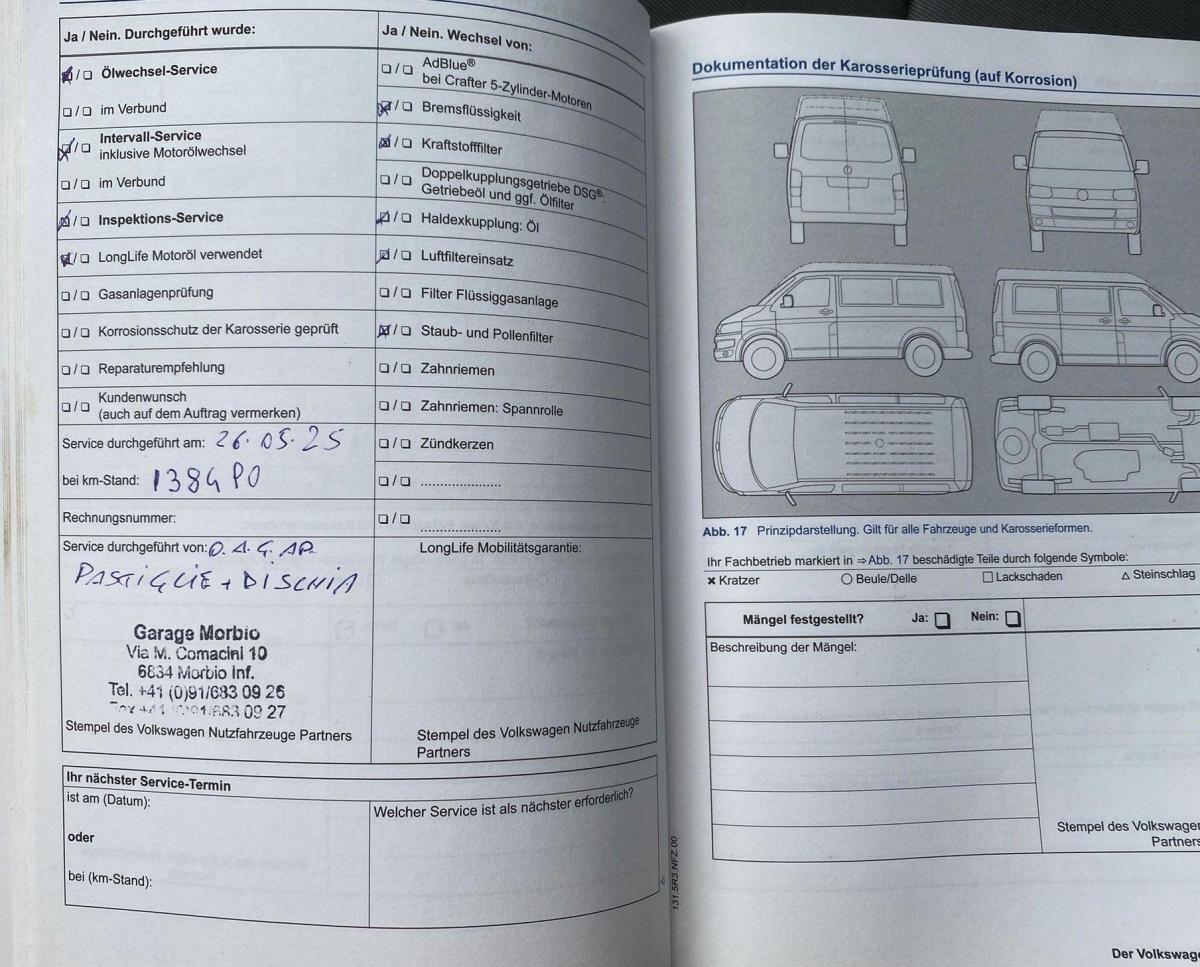 Ja / Nein. Durchgeführt wurde:
Ölwechsel-Service
im Verbund
Intervall-Service
inklusive Motorölwechsel
im Verbund
Inspektions-Service
LongLife Motoröl verwendet
Gasanlagenprüfung
Korrosionsschutz der Karosserie geprüft
Reparaturempfehlung
Kundenwunsch
(auch auf dem Auftrag vermerken)
Service durchgeführt am: 26.05.25
bei km-Stand:
Rechnungsnummer:
Service durchgeführt von:
PASTIGLIE + DISCHI
Garage Morbio
Via M. Comacini 10
6834 Morbio Inf.
Tel. +41 (0)91/683 09 26
Fax +41 (0)91/683 09 27
Stempel des Volkswagen Nutzfahrzeuge Partners
Ja / Nein. Wechsel von:
AdBlue®
bei Crafter 5-Zylinder-Motoren
Bremsflüssigkeit
Kraftstofffilter
Doppelkupplungsgetriebe DSG®:
Getriebeöl und ggf. Ölfilter
Haldexkupplung: Öl
Luftfiltereinsatz
Filter Flüssiggasanlage
Staub- und Pollenfilter
Zahnriemen
Zahnriemen: Spannrolle
Zündkerzen
LongLife Mobilitätsgarantie:
Stempel des Volkswagen Nutzfahrzeuge
Partners
Ihr nächster Service-Termin
ist am (Datum):
oder
bei (km-Stand):
Welcher Service ist als nächster erforderlich?
131.5R3.NFZ.00
Dokumentation der Karosserieprüfung (auf Korrosion)
Abb. 17 Prinzipdarstellung. Gilt für alle Fahrzeuge und Karosserieformen.
Ihr Fachbetrieb markiert in ⇒Abb. 17 beschädigte Teile durch folgende Symbole:
× Kratzer ○ Beule/Delle □ Lackschaden △ Steinschlag
Mängel festgestellt? Ja: Nein:
Beschreibung der Mängel:
Stempel des Volkswagen
Partners
Der Volkswag